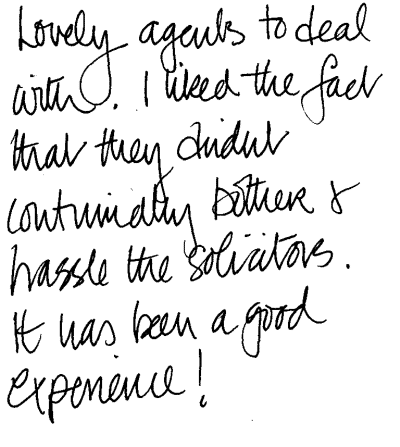 Lovely agents to deal
with. I liked the fact
that they didnt
continually bother &
hassle the solicitors.
It has been a good
experience!